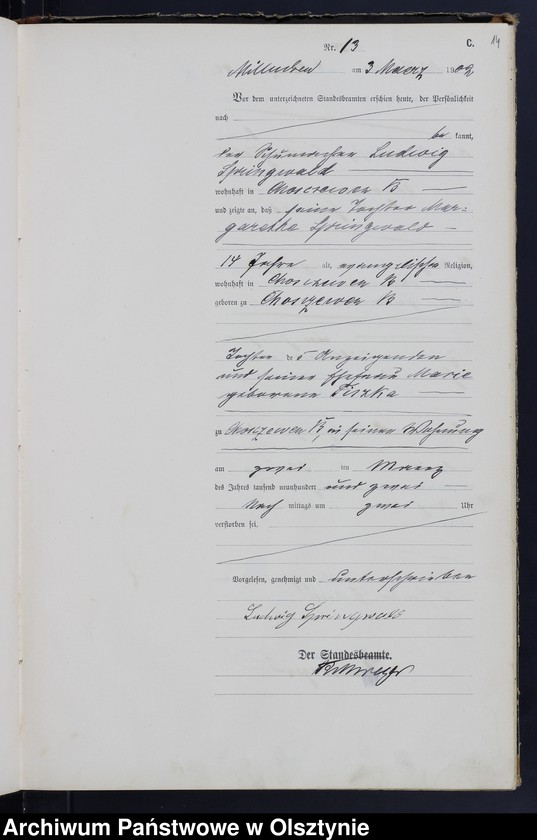 14
Nr. 13 C.
Milluken am 3 Maerz 1902
Vor dem unterzeichneten Standesbeamten erschien heute, der Persönlichkeit
nach
be kannt,
der Schumacher Ludwig
Springwald
wohnhaft in Choszewen B
und zeigte an, daß seine Tochter Mar-
garethe Springwald
14 Jahre alt, evangelischer Religion,
wohnhaft in Choszewen B
geboren zu Choszewen B
Tochter des Anzeigenden
und seiner Ehefrau Marie
geborene Piszka
zu Choszewen B, in seiner Wohnung
am zwei ten Maerz
des Jahres tausend neunhundert und zwei
Nach mittags um zwei Uhr
verstorben sei.
Vorgelesen, genehmigt und unterschrieben
Ludwig Springwald
Der Standesbeamte.
Archiwum Państwowe w Olsztynie